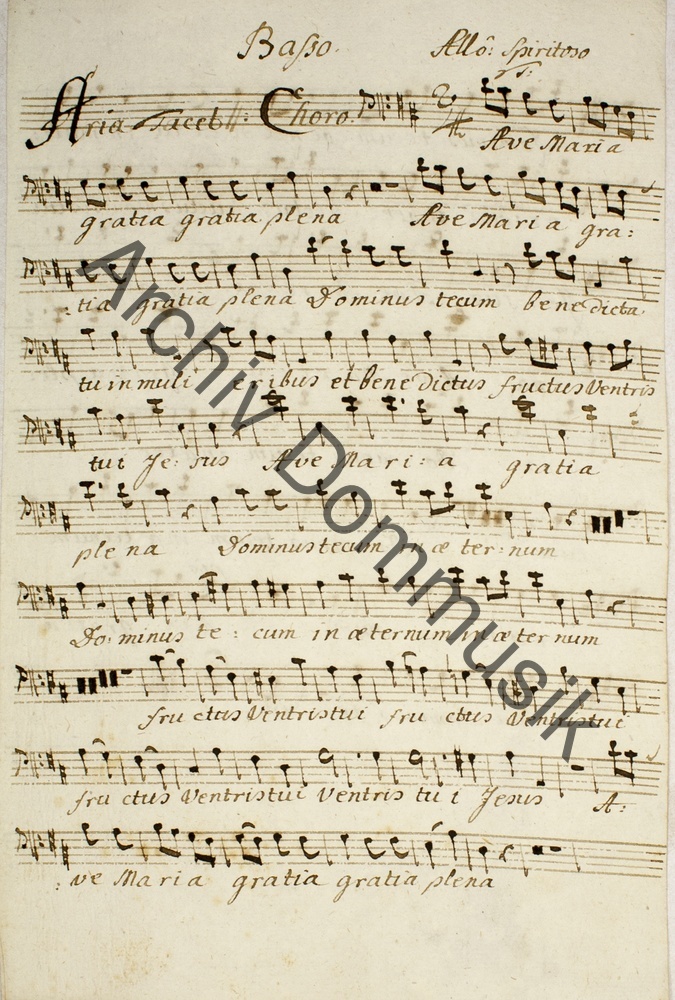 Basso. Allo: Spiritoso
T:
Aria Tacet //: Choro.
Ave Maria
gratia gratia plena Ave Maria gra:
:tia gratia plena Dominus tecum benedicta
tu in muli eribus et bene Dictus fructus Ventris
tui Je: sus Ave Mari: a gratia
plena Dominus tecum in æ ter: num
Do: minus te: cum in æternum in æ ter num
fru ctus Ventris tui fru ctus Ventris tui
fru ctus Ventris tui Ventris tu i Jesus A:
:ve Maria gratia gratia plena
Archiv Dommusik